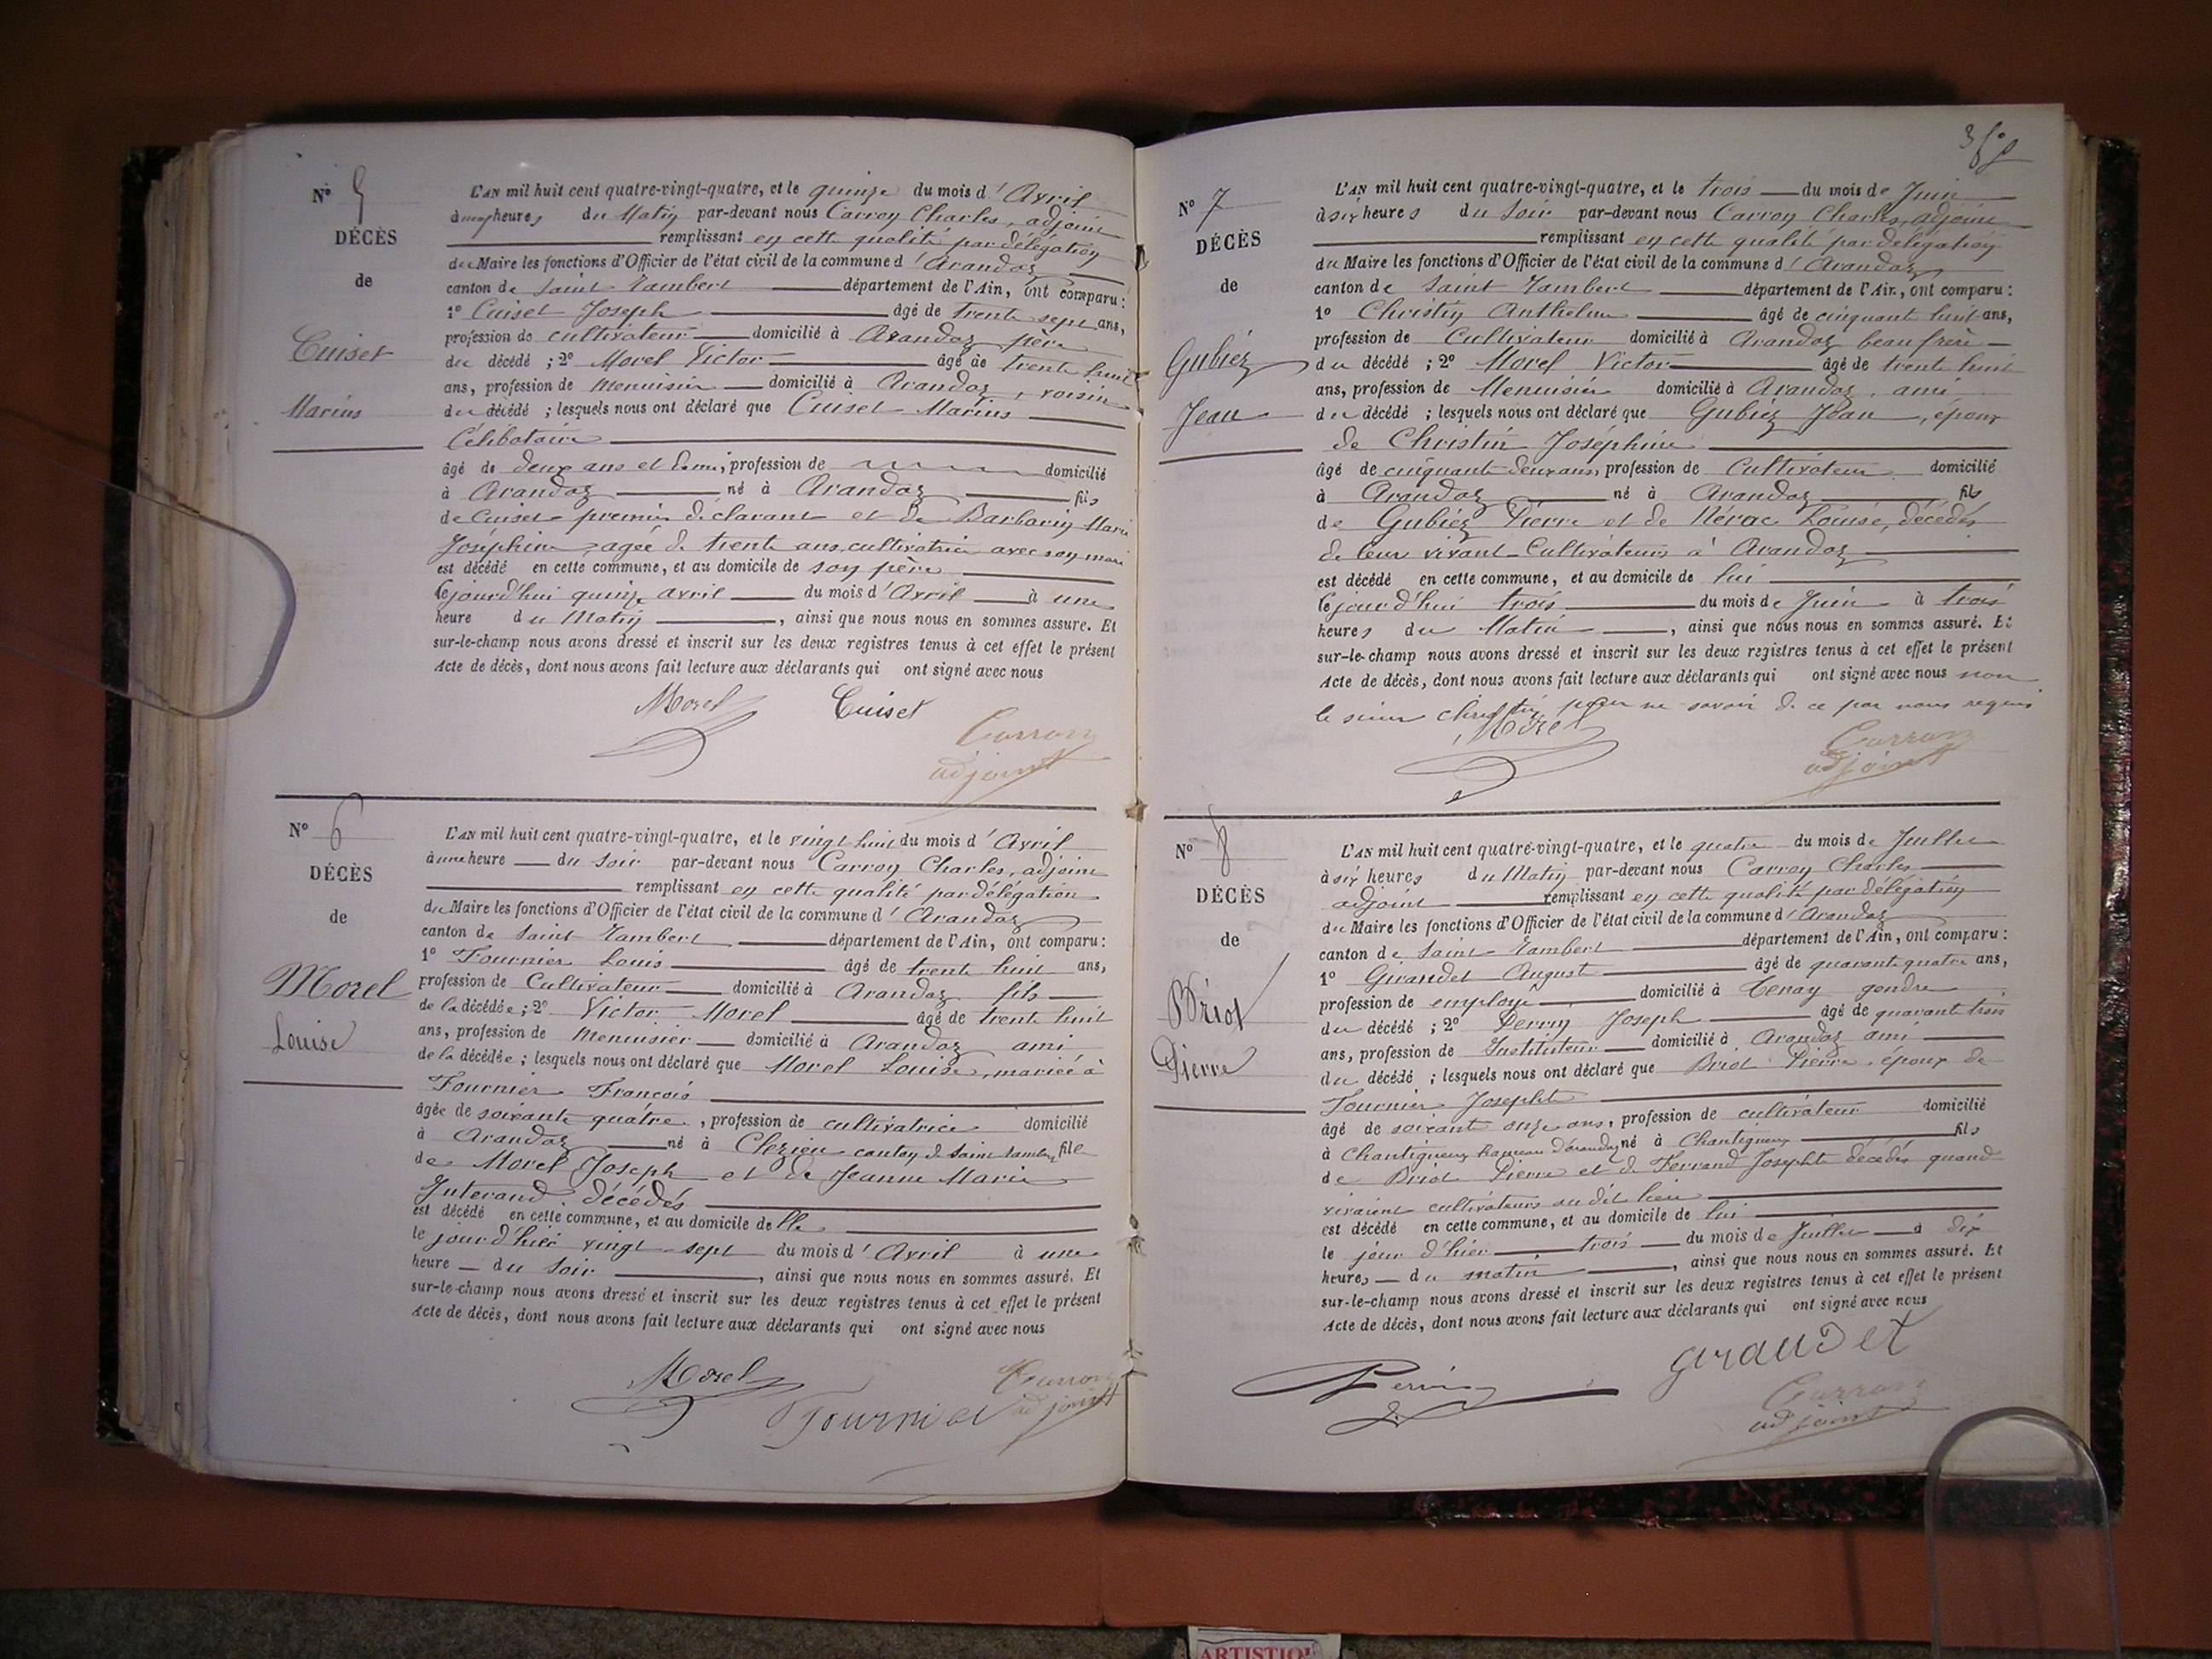 N° 5
DÉCÈS
de
Cuiset
Marius
L'AN mil huit cent quatre-vingt-quatre, et le quinze du mois d'Avril
à neuf heures du Matin par-devant nous Carron Charles, adjoint
remplissant en cette qualité par délégation
du Maire les fonctions d'Officier de l'état civil de la commune d'Arandas
canton de Saint Rambert département de l'Ain, ont comparu :
1° Cuiset Joseph âgé de trente sept ans,
profession de cultivateur domicilié à Arandas père
du décédé ; 2° Morel Victor âgé de trente huit
ans, profession de Menuisier domicilié à Arandas, voisin
du décédé ; lesquels nous ont déclaré que Cuiset Marius
Célibataire
âgé de deux ans et demi, profession de domicilié
à Arandas né à Arandas fils
de Cuiset premier déclarant et de Barbarin Marie
Joséphine agée de trente ans, cultivatrice avec son mari
est décédé en cette commune, et au domicile de son père
le jourd'hui quinze avril du mois d'Avril à une
heure du Matin, ainsi que nous nous en sommes assuré. Et
sur-le-champ nous avons dressé et inscrit sur les deux registres tenus à cet effet le présent
Acte de décès, dont nous avons fait lecture aux déclarants qui ont signé avec nous
Morel Cuiset
Carron
adjoint
N° 6
DÉCÈS
de
Morel
Louise
L'AN mil huit cent quatre-vingt-quatre, et le vingt huit du mois d'Avril
à une heure du soir par-devant nous Carron Charles, adjoint
remplissant en cette qualité par délégation
du Maire les fonctions d'Officier de l'état civil de la commune d'Arandas
canton de Saint Rambert département de l'Ain, ont comparu :
1° Fournier Louis âgé de trente huit ans,
profession de Cultivateur domicilié à Arandas fils
de la décédée ; 2° Victor Morel âgé de trente huit
ans, profession de Menuisier domicilié à Arandas ami
de la décédée ; lesquels nous ont déclaré que Morel Louise, mariée à
Fournier François
âgée de soixante quatre, profession de cultivatrice domicilié
à Arandas né à Clezieu canton de Saint Rambert file
de Morel Joseph et de Jeanne Marie
Juterand décédés
est décédé en cette commune, et au domicile de lle
le jourd'hier vingt-sept du mois d'Avril à une
heure du soir, ainsi que nous nous en sommes assuré. Et
sur-le-champ nous avons dressé et inscrit sur les deux registres tenus à cet effet le présent
Acte de décès, dont nous avons fait lecture aux déclarants qui ont signé avec nous
Morel Fournier Carron
adjoint
N° 7
DÉCÈS
de
Gubiez
Jean
L'AN mil huit cent quatre-vingt-quatre, et le trois du mois de Juin
à six heures du Soir par-devant nous Carron Charles, adjoint
remplissant en cette qualité par délégation
du Maire les fonctions d'Officier de l'état civil de la commune d'Arandas
canton de Saint Rambert département de l'Ain, ont comparu :
1° Christin Anthelme âgé de cinquante huit ans,
profession de Cultivateur domicilié à Arandas beau frère
du décédé ; 2° Morel Victor âgé de trente huit
ans, profession de Menuisier domicilié à Arandas, ami
du décédé ; lesquels nous ont déclaré que Gubiez Jean, époux
de Christin Joséphine
âgé de cinquante deux ans, profession de Cultivateur domicilié
à Arandas né à Arandas fils
de Gubiez Pierre et de Nérac Louise, décédés
de leur vivant Cultivateurs à Arandas
est décédé en cette commune, et au domicile de lui
le jourd'hui trois du mois de Juin à trois
heures du Matin, ainsi que nous nous en sommes assuré. Et
sur-le-champ nous avons dressé et inscrit sur les deux registres tenus à cet effet le présent
Acte de décès, dont nous avons fait lecture aux déclarants qui ont signé avec nous non
le sieur Christin pour ne savoir de ce par nous requis
Morel
Carron
adjoint
N° 8
DÉCÈS
de
Briot
Pierre
L'AN mil huit cent quatre-vingt-quatre, et le quatre du mois de Juillet
à six heures du Matin par-devant nous Carron Charles
adjoint remplissant en cette qualité par délégation
du Maire les fonctions d'Officier de l'état civil de la commune d'Arandas
canton de Saint Rambert département de l'Ain, ont comparu :
1° Giraudet August âgé de quarante quatre ans,
profession de employé domicilié à Tenay gendre
du décédé ; 2° Perrin Joseph âgé de quarante trois
ans, profession de Instituteur domicilié à Arandas ami
du décédé ; lesquels nous ont déclaré que Briot Pierre, époux de
Fournier Josephte
âgé de soixante onze ans, profession de cultivateur domicilié
à Chantigneux hameau d'Arandas né à Chantigneux fils
de Briot Pierre et de Ferrand Josephte décédés quand
vivaient cultivateurs au dit lieu
est décédé en cette commune, et au domicile de lui
le jour d'hier trois du mois de Juillet à dix
heures du matin, ainsi que nous nous en sommes assuré. Et
sur-le-champ nous avons dressé et inscrit sur les deux registres tenus à cet effet le présent
Acte de décès, dont nous avons fait lecture aux déclarants qui ont signé avec nous
Perrin giraudet
Carron
adjoint